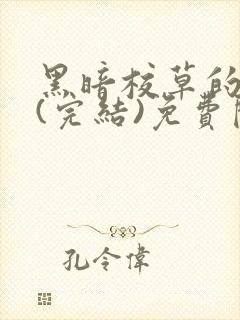 黑暗校草的
(完結)免費
孔令偉